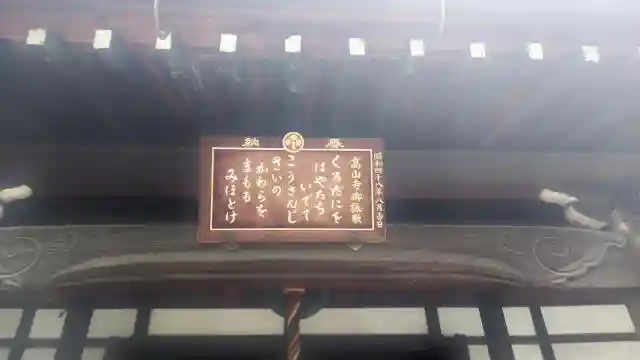 奉納
昭和四十八年八月吉日
高山寺御詠歌
くるたにを
はやたち
いでて
こうさんじ
せいの
かわらを
まもる
みほとけ